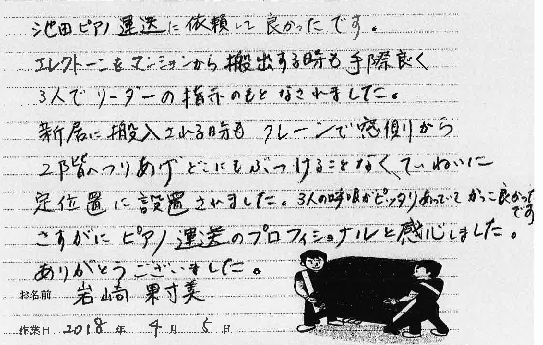 池田ピアノ運送に依頼して良かったです。
エレクトーンをマンションから搬出する時も手際良く
3人でリーダーの指示のもとなされました。
新居に搬入される時もクレーンで窓側から
2階へつりあげどこにもぶつけることなくていねいに
定位置に設置されました。3人の呼吸がピッタリあっていてかっこ良かったです
さすがにピアノ運送のプロフィショナルと感心しました。
ありがとうございました。
お名前 岩崎 寿美
作業日 2018年 4月 5日